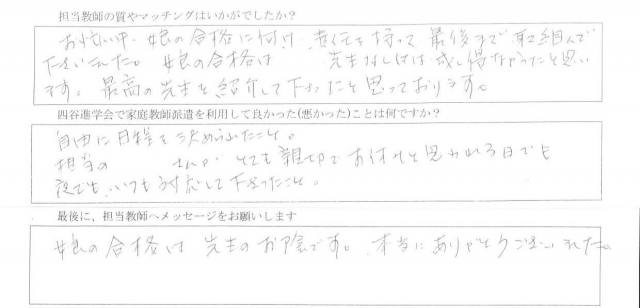 担当教師の質やマッチングはいかがでしたか？
お忙い中、娘の合格に向け、責任を持って最後まで取組んで
下さいました。娘の合格は 先生なしには成し得なかったと思い
ます。最高の先生を紹介して下さったと思っております。
四谷進学会で家庭教師派遣を利用して良かった(悪かった)ことは何ですか？
自由に日程を決めらたこと。
担当の さんが、とても親切でお休みと思われる日でも
夜でも、いつも対応して下さったこと。
最後に、担当教師へメッセージをお願いします
娘の合格は先生のお陰です。本当にありがとうございました。